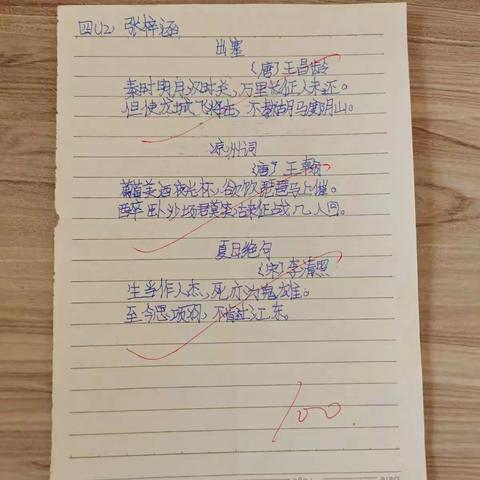 四(2) 张梓涵
出塞
(唐)王昌龄
秦时明月汉时关,万里长征人未还。
但使龙城飞将在,不教胡马度阴山。
凉州词
(唐)王翰
葡萄美酒夜光杯,欲饮琵琶马上催。
醉卧沙场君莫笑,古来征战几人回。
夏日绝句
(宋)李清照
生当作人杰,死亦为鬼雄。
至今思项羽,不肯过江东。
100